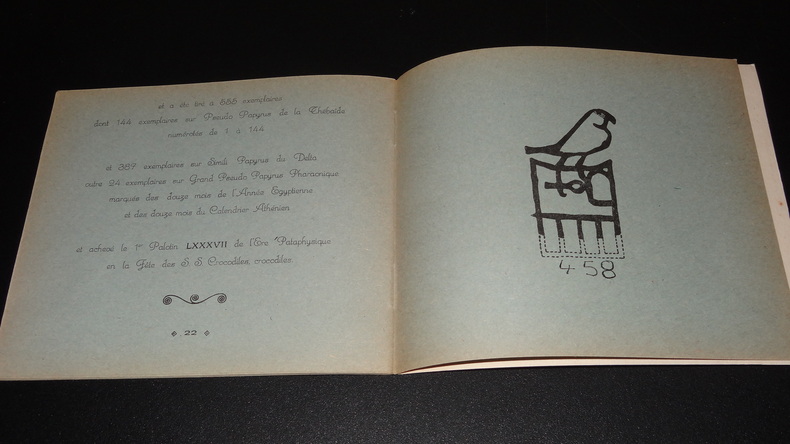 et a été tiré à 555 exemplaires
dont 144 exemplaires sur Pseudo Papyrus de la Thébaïde
numérotés de 1 à 144
et 387 exemplaires sur Simili Papyrus du Delta
outre 24 exemplaires sur Grand Pseudo Papyrus Pharaonique
marqués des douze mois de l'Année Egyptienne
et des douze mois du Calendrier Athénien
et achevé le 1er Palotin LXXXVII de l'Ère 'Pataphysique
en la Fête des S S Crocodiles crocodiles
22
458